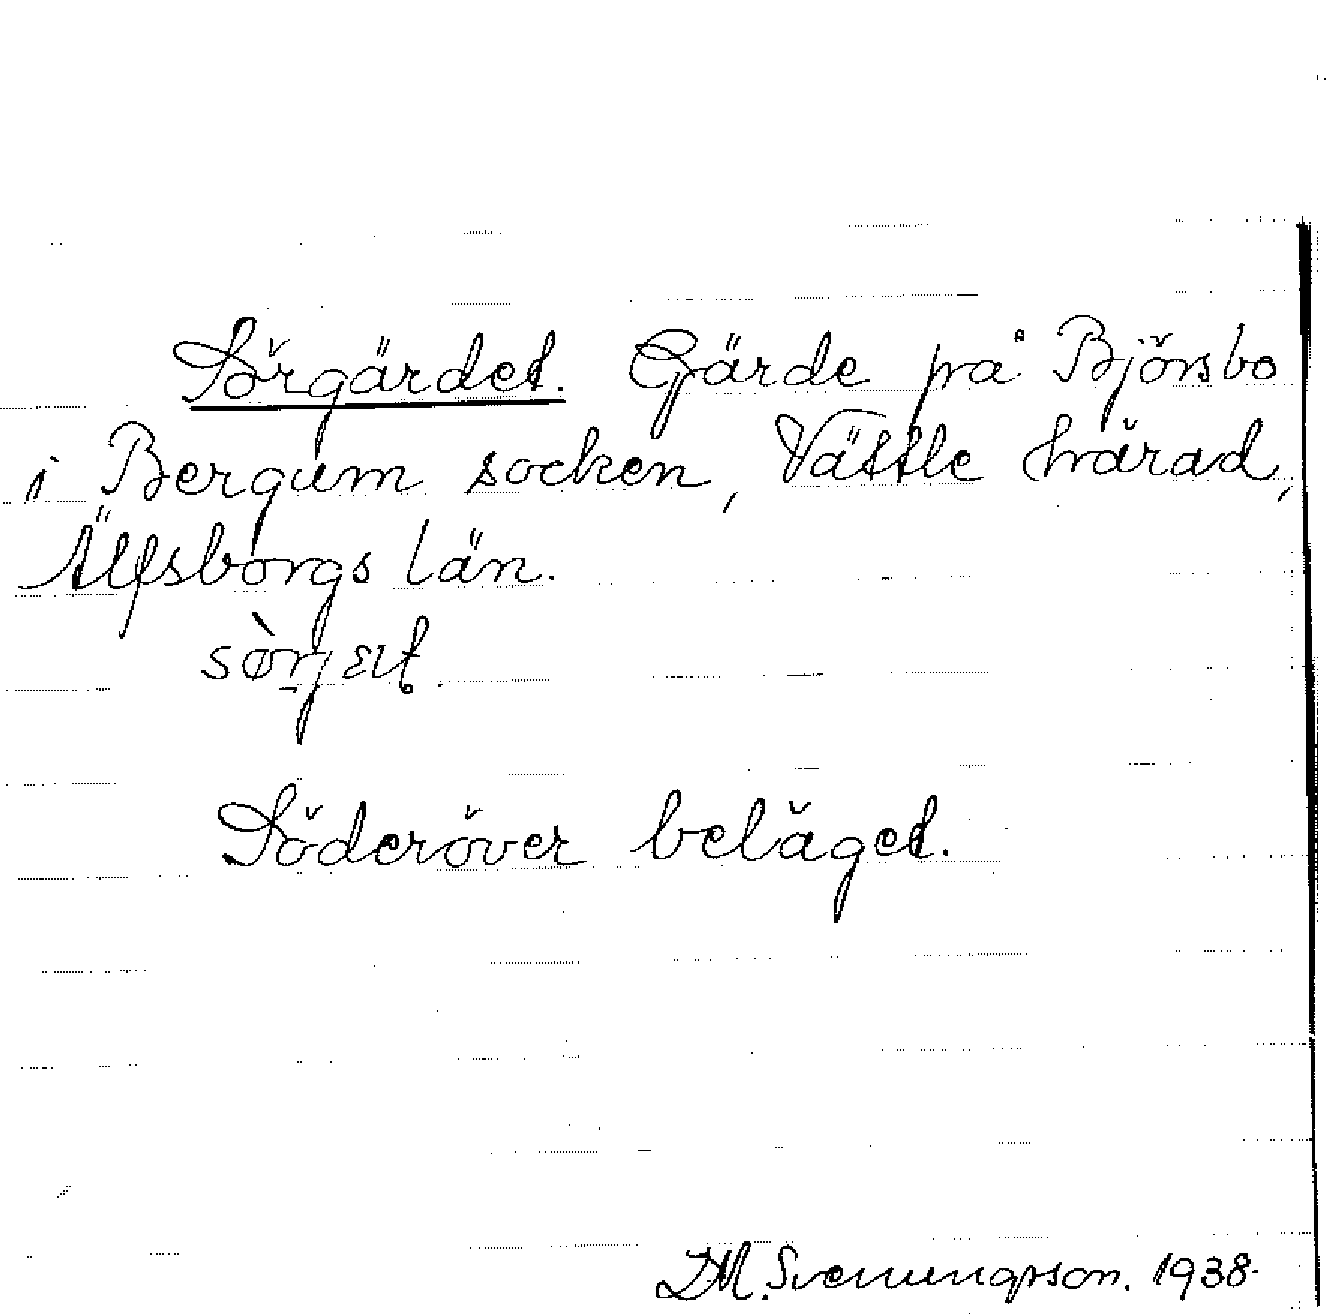 Sörgärdet. Gärde på Björsbo
i Bergum socken, Vättle härad,
Älfsborgs län.
Söderöver beläget.
D.M. Svenungsson. 1938.